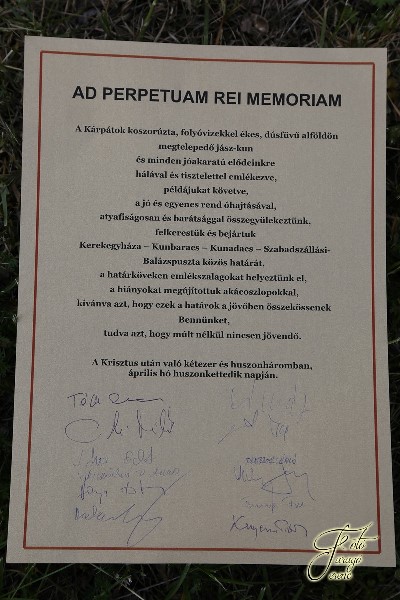 AD PERPETUAM REI MEMORIAM
A Kárpátok koszorúzta, folyóvizekkel ékes, dúsfüvű alföldön
megtelepedő jász-kun
és minden jóakaratú elődeinkre
hálával és tisztelettel emlékezve,
példájukat követve,
a jó és egyenes rend óhajtásával,
atyafiságosan és barátsággal összegyülekeztünk,
felkerestük és bejártuk
Kerekegyháza – Kunbaracs – Kunadacs – Szabadszállási-
Balázspuszta közös határát.
a határköveken emlékszalagokat helyeztünk el,
a hiányokat megújítottuk akácoszlopokkal,
kívánva azt, hogy ezek a határok a jövőben összekössenek
Bennünket,
tudva azt, hogy múlt nélkül nincsen jövendő.
A Krisztus után való kétezer és huszonháromban,
április hó huszonkettedik napján.